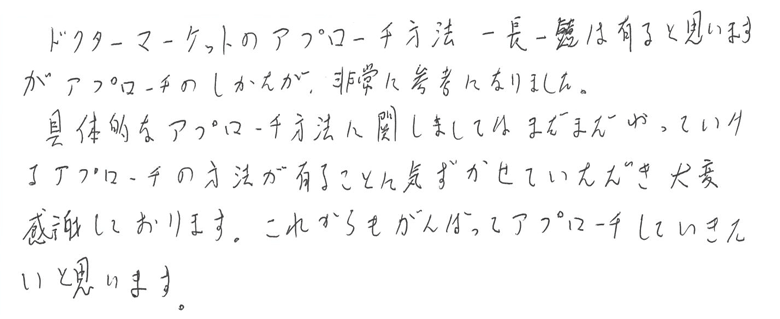 ドクターマーケットのアプローチ方法 一長一短は有ると思います
がアプローチのしかたが、非常に参考になりました。
具体的なアプローチ方法に関しましてはまだまだやっていけ
るアプローチの方法が有ることに気ずかせていただき大変
感謝しております。これからもがんばってアプローチしていきた
いと思います。